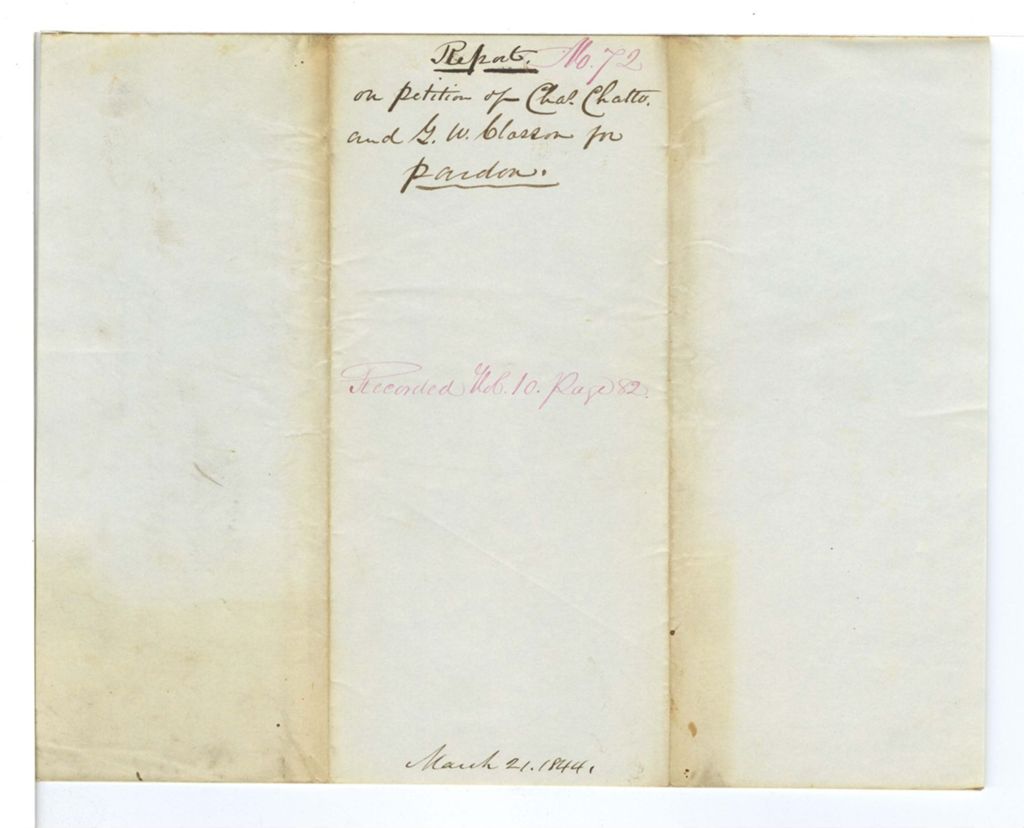 Report. No. 72
on petition of Chas. Chatto.
and G. W. Classon for
pardon.
Recorded Vol. 10. Page 82.
March 21. 1844.